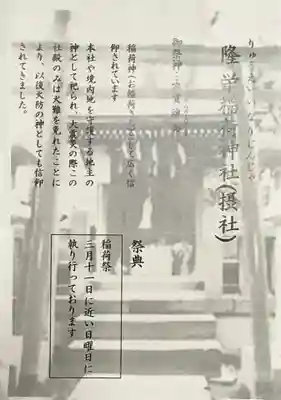 りゅうえいいなりじんじゃ
隆栄稲荷神社(摂社)
御祭神
稲荷神へお稲荷さんとして広く信
仰されています
本社や境内地を守護する地主の
神として祀られ、大震災の際この
社殿のみは火難を免れたことに
より、以後火防の神としても信仰
されてきました。
祭典
稲荷祭
三月十一日に近い日曜日に
執り行っております